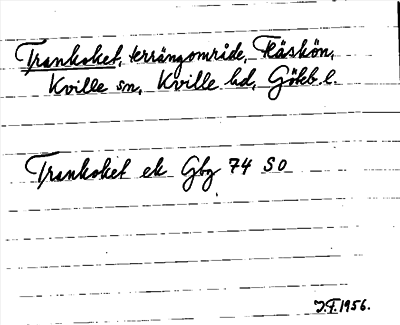 Trankoket, terrängområde, Fläskön,
Kville sn, Kville hd, Göteb. l.
Trankoket ek Gbg 74 SO
J.F. 1956.